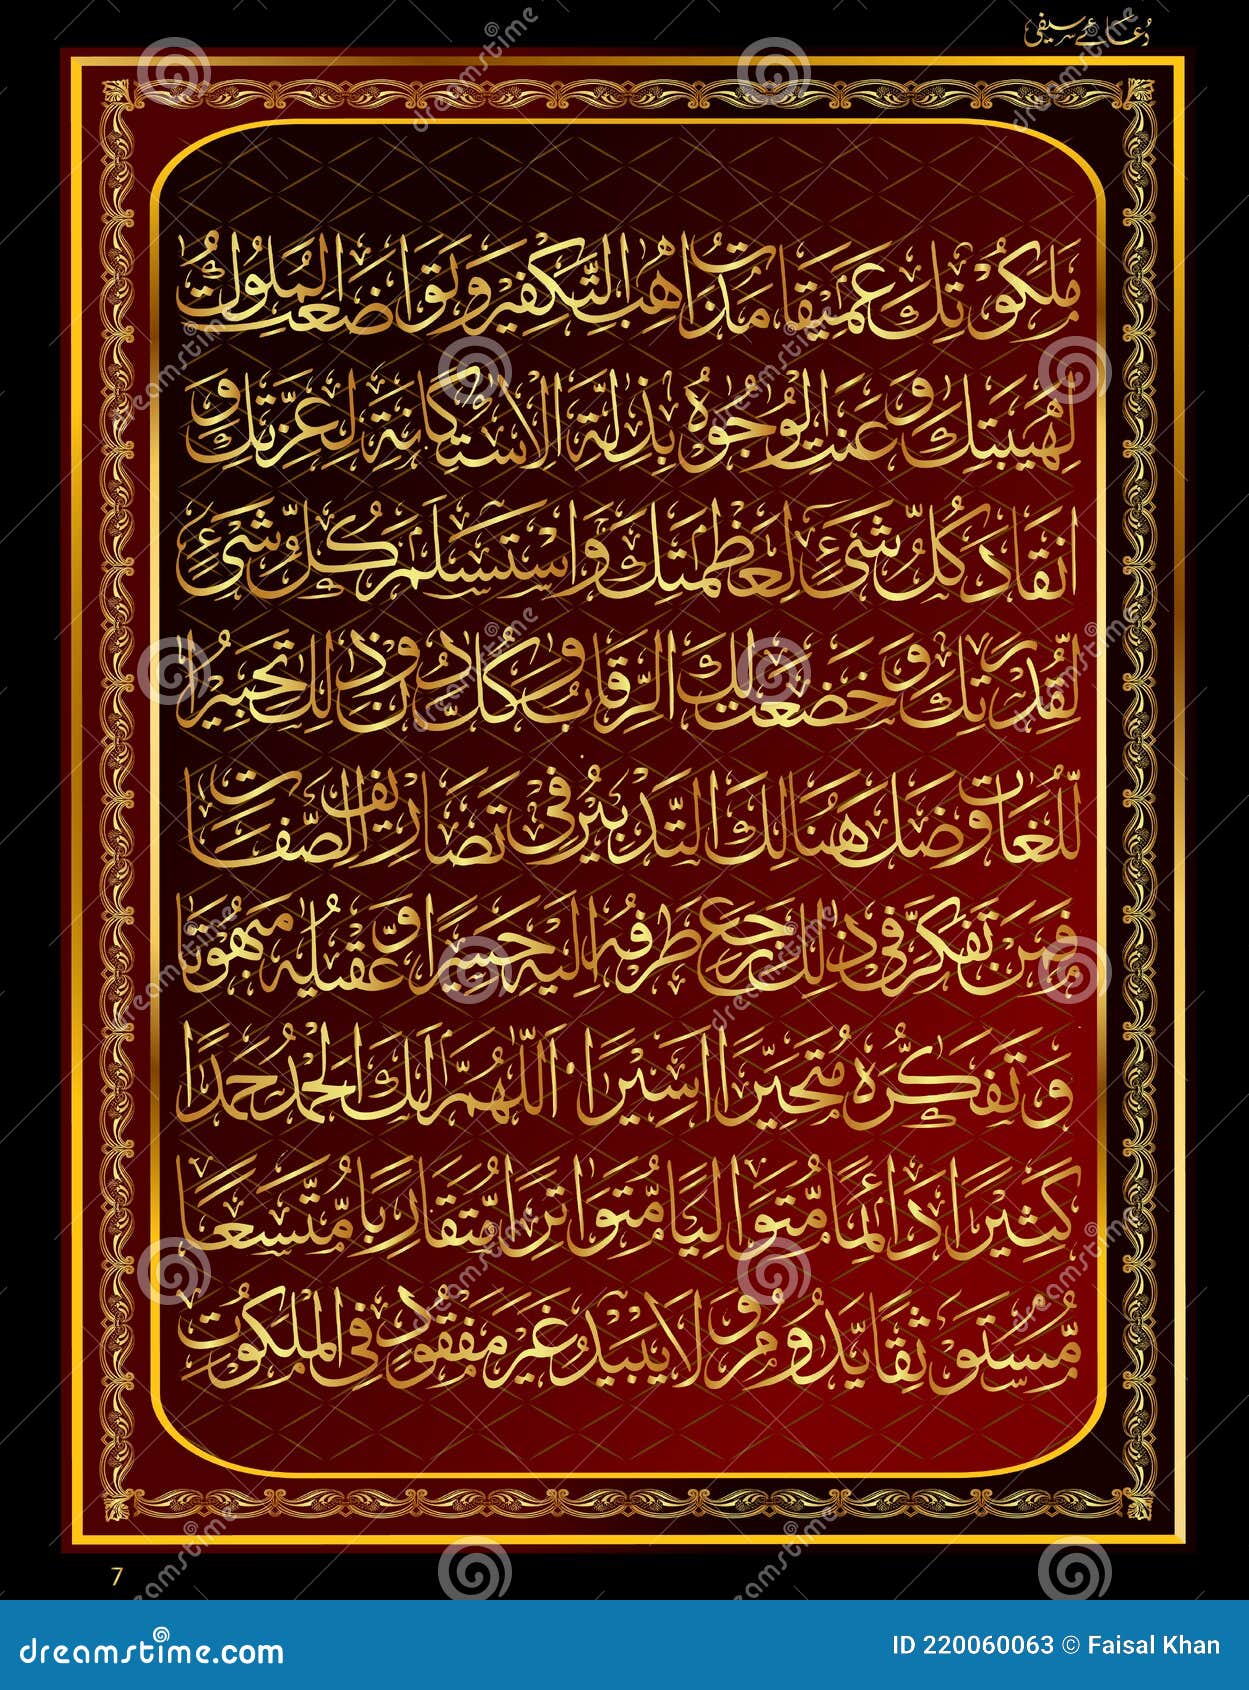 دُعائے سیفی
مَلَكُوْتِكَ عَمِيْقَاتُ مَذَاهِبِ التَّكْفِيْرِ وَتَوَاضَعَتِ الْمُلُوْكُ
لِهَيْبَتِكَ وَعَنَتِ الْوُجُوْهُ بِذِلَّةِ الْاِسْتِكَانَةِ لِعِزَّتِكَ وَ
انْقَادَ كُلُّ شَيْءٍ لِعَظْمَتِكَ وَاسْتَسْلَمَ كُلُّ شَيْءٍ
لِقُدْرَتِكَ وَخَضَعَتْ لَكَ الرِّقَابُ وَكَلَّ دُوْنَ ذٰلِكَ تَحْبِيْرُ
اللُّغَاتِ وَضَلَّ هُنَالِكَ التَّدْبِيْرُ فِيْ تَصَارِيْفِ الصِّفَاتِ
فَمَنْ تَفَكَّرَ فِيْ ذٰلِكَ رَجَعَ طَرْفُهٗ اِلَيْهِ حَسِيْرًا وَّعَقْلُهٗ مَبْهُوْتًا
وَتَفَكُّرُهٗ مُتَحَيِّرًا اَسِيْرًا اَللّٰهُمَّ لَكَ الْحَمْدُ حَمْدًا
كَثِيْرًا دَائِمًا مُّتَوَالِيًا مُّتَوَاتِرًا مُّتَقَارِبًا مُّتَّسِعًا
مُّسْتَوْثِقًا يَّدُوْمُ وَلَا يَبِيْدُ غَيْرَ مَفْقُوْدٍ فِي الْمَلَكُوْتِ
7
dreamstime.com
ID 220060063 © Faisal Khan